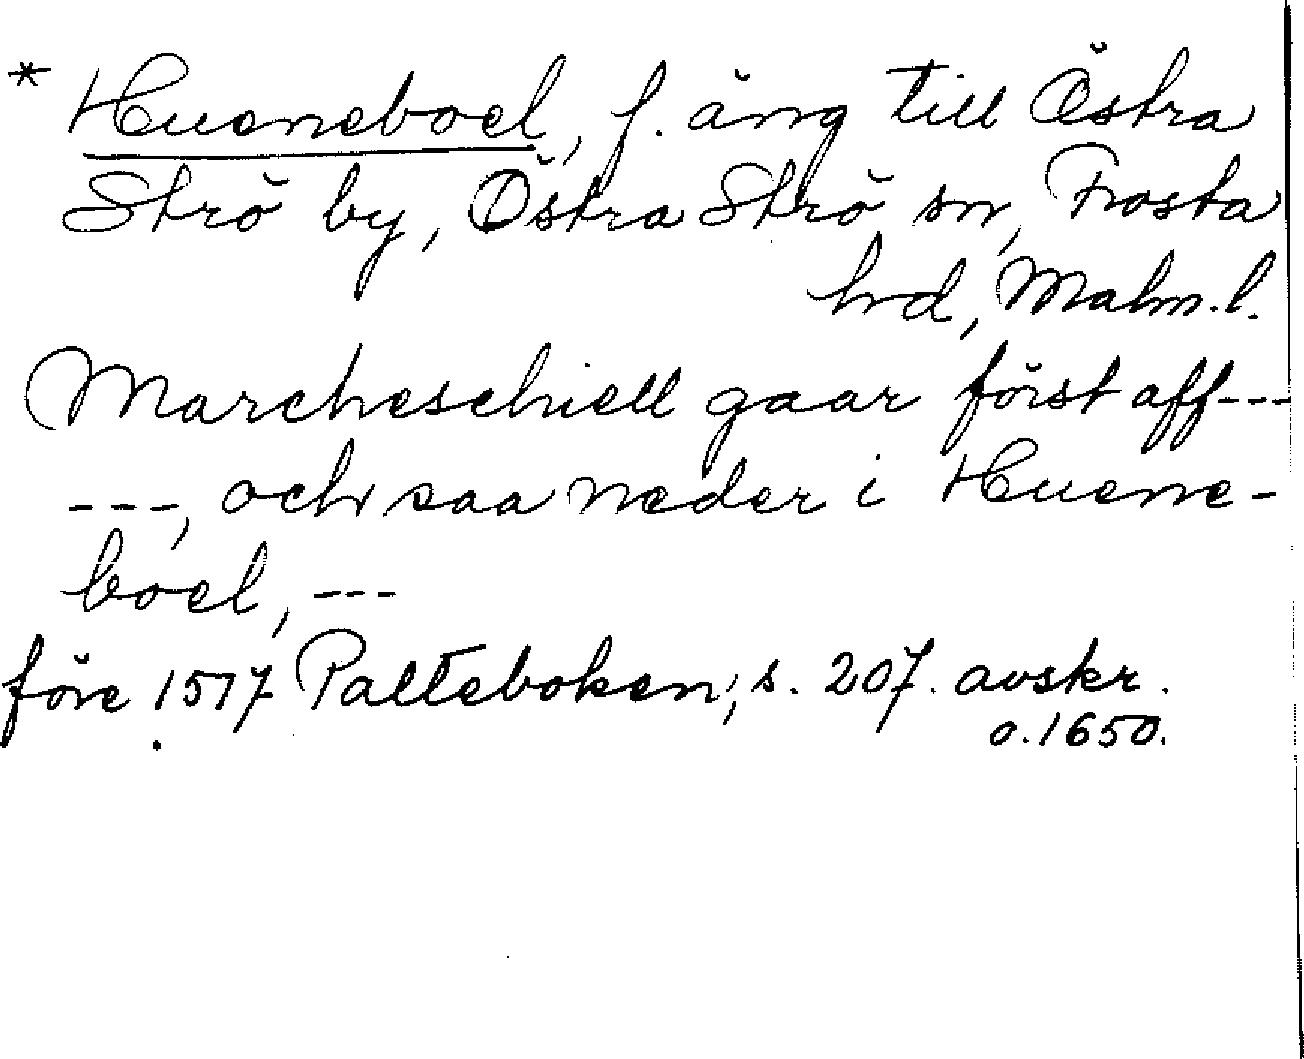 * Hueneboel, f. äng till Östra
Strö by, Östra Strö sn, Frosta
hd, Malm.l.
Marcheschiell gaar först aff---
---, och saa neder i Huene-
boel, ---
före 1517 Palteboken; s. 207. avskr.
o. 1650.